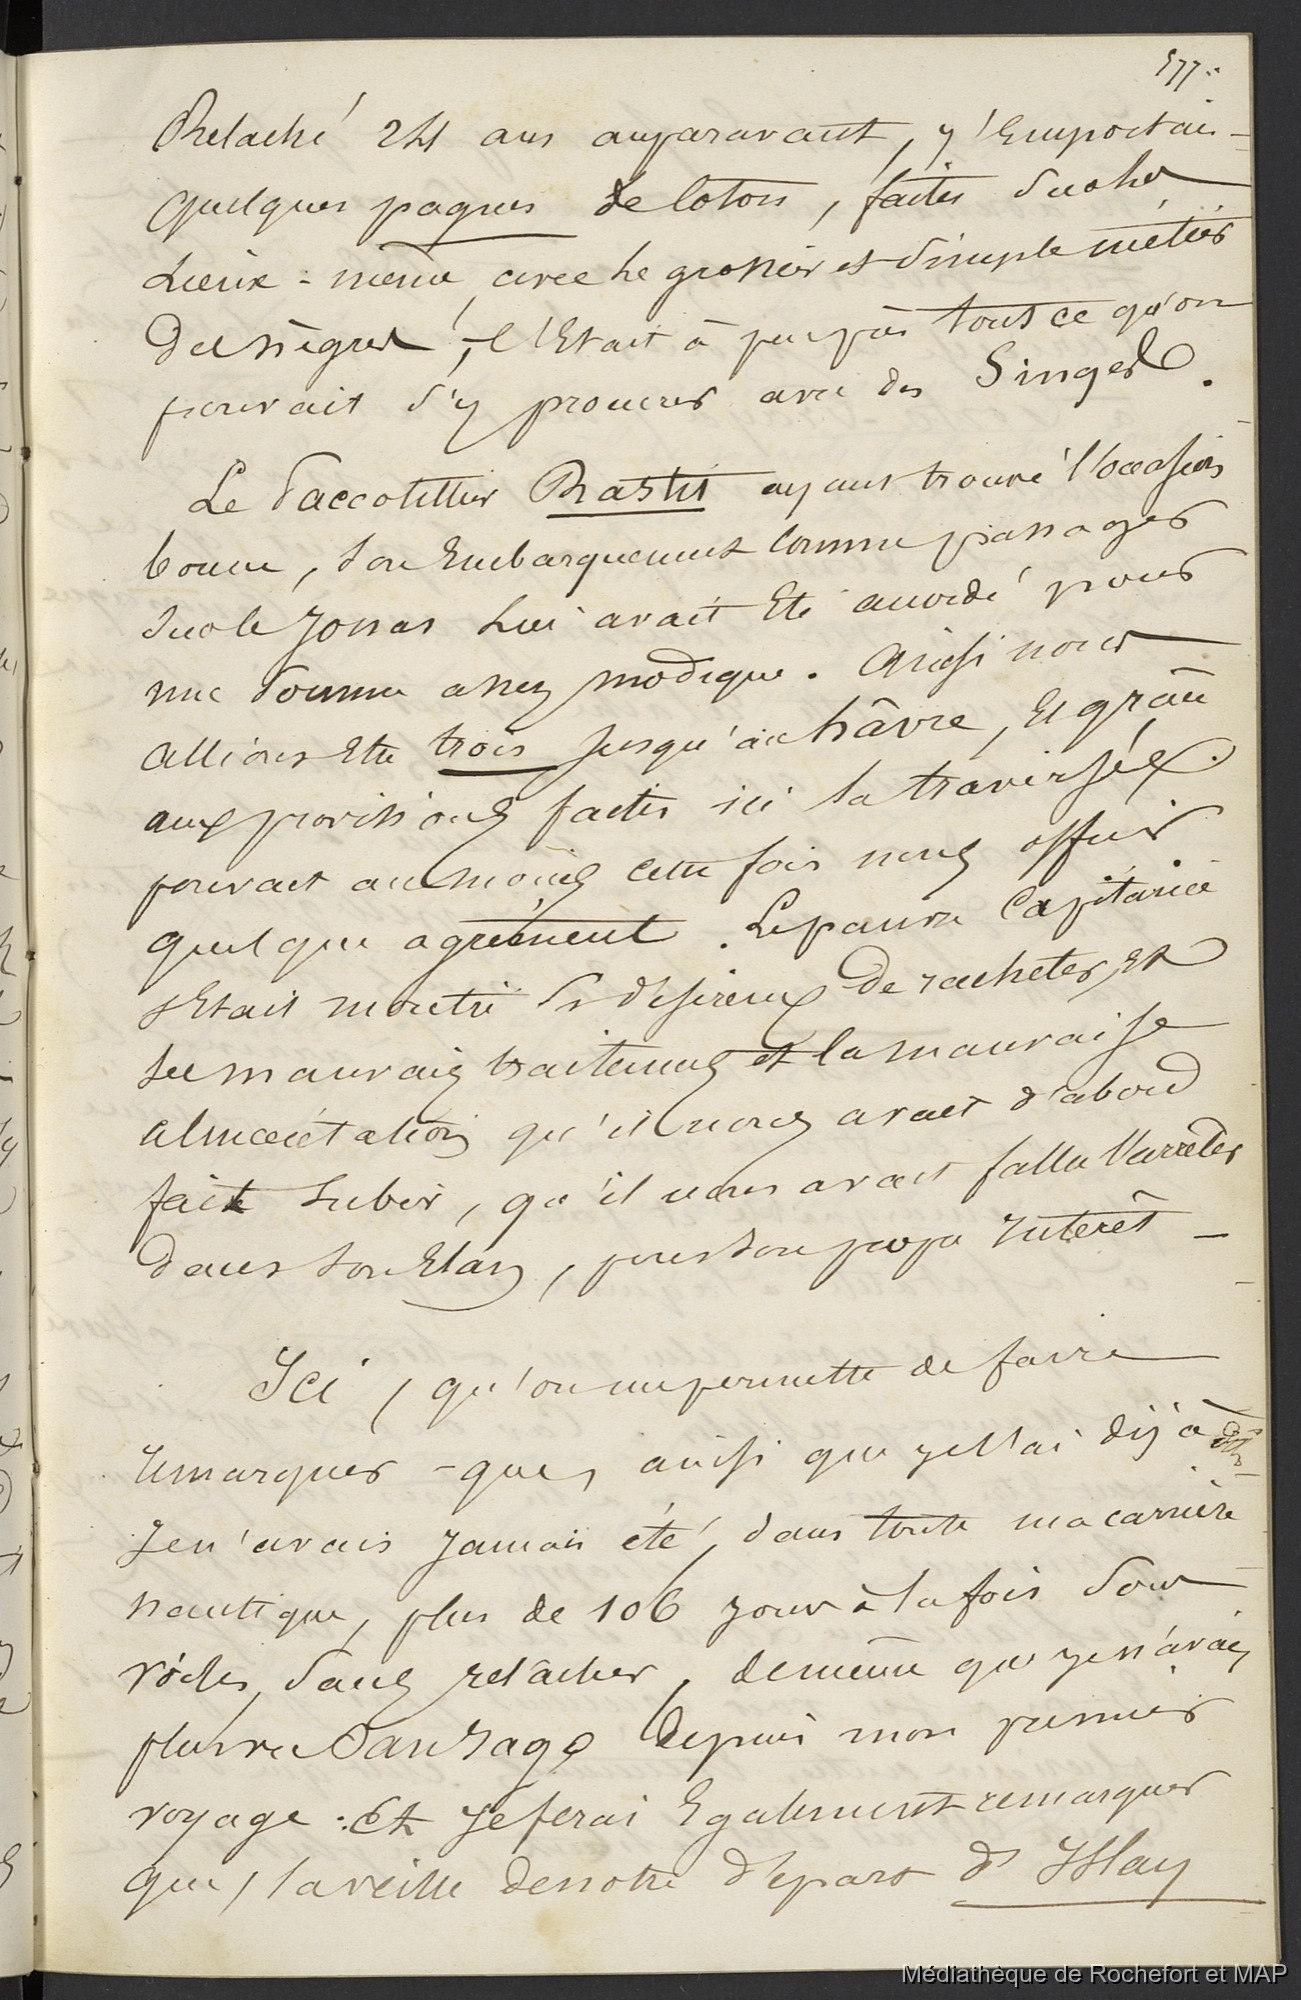 577..
Relaché 24 ans auparavant, j'Emportais
quelques pagnes de Coton, faites sur les
Lieux-même, avec le grossier et Simple métier
des nègres, - C'Etait à peu près tout ce qu'on
pouvait s'y procurer avec des Singes.
Le Paccotilleur Rastit ayant trouvé l'occasion
bonne, son Embarquement comme passager
sur le Jonas Lui avait Eté accordé pour
une somme assez modique. Ainsi nous
allions Etre trois jusqu'au hâvre, Et grâce
aux provisions faites ici la traversée
pouvait au moins cette fois nous offrir
quelque agrément. Le pauvre Capitaine
s'Etait montré si désireux de racheter, Et
les mauvais traitemens et la mauvaise
alimentation qu'il nous avait d'abord
fait Subir, qu'il nous avait fallu l'arrêter
dans Son Elan, pour son propre Intérêt -
Ici, qu'on me permette de faire
remarquer - que, ainsi que je l'ai déjà dit
Je n'avais Jamais été, dans toute ma carrière
nautique, plus de 106 jours à la fois Sous
voiles, Sans relâcher, de même que je n'avais
plus vu depuis mon premier
voyage : Et Je ferai Egalement remarquer
que, la veille de notre départ d'Islay
Médiathèque de Rochefort et MAP